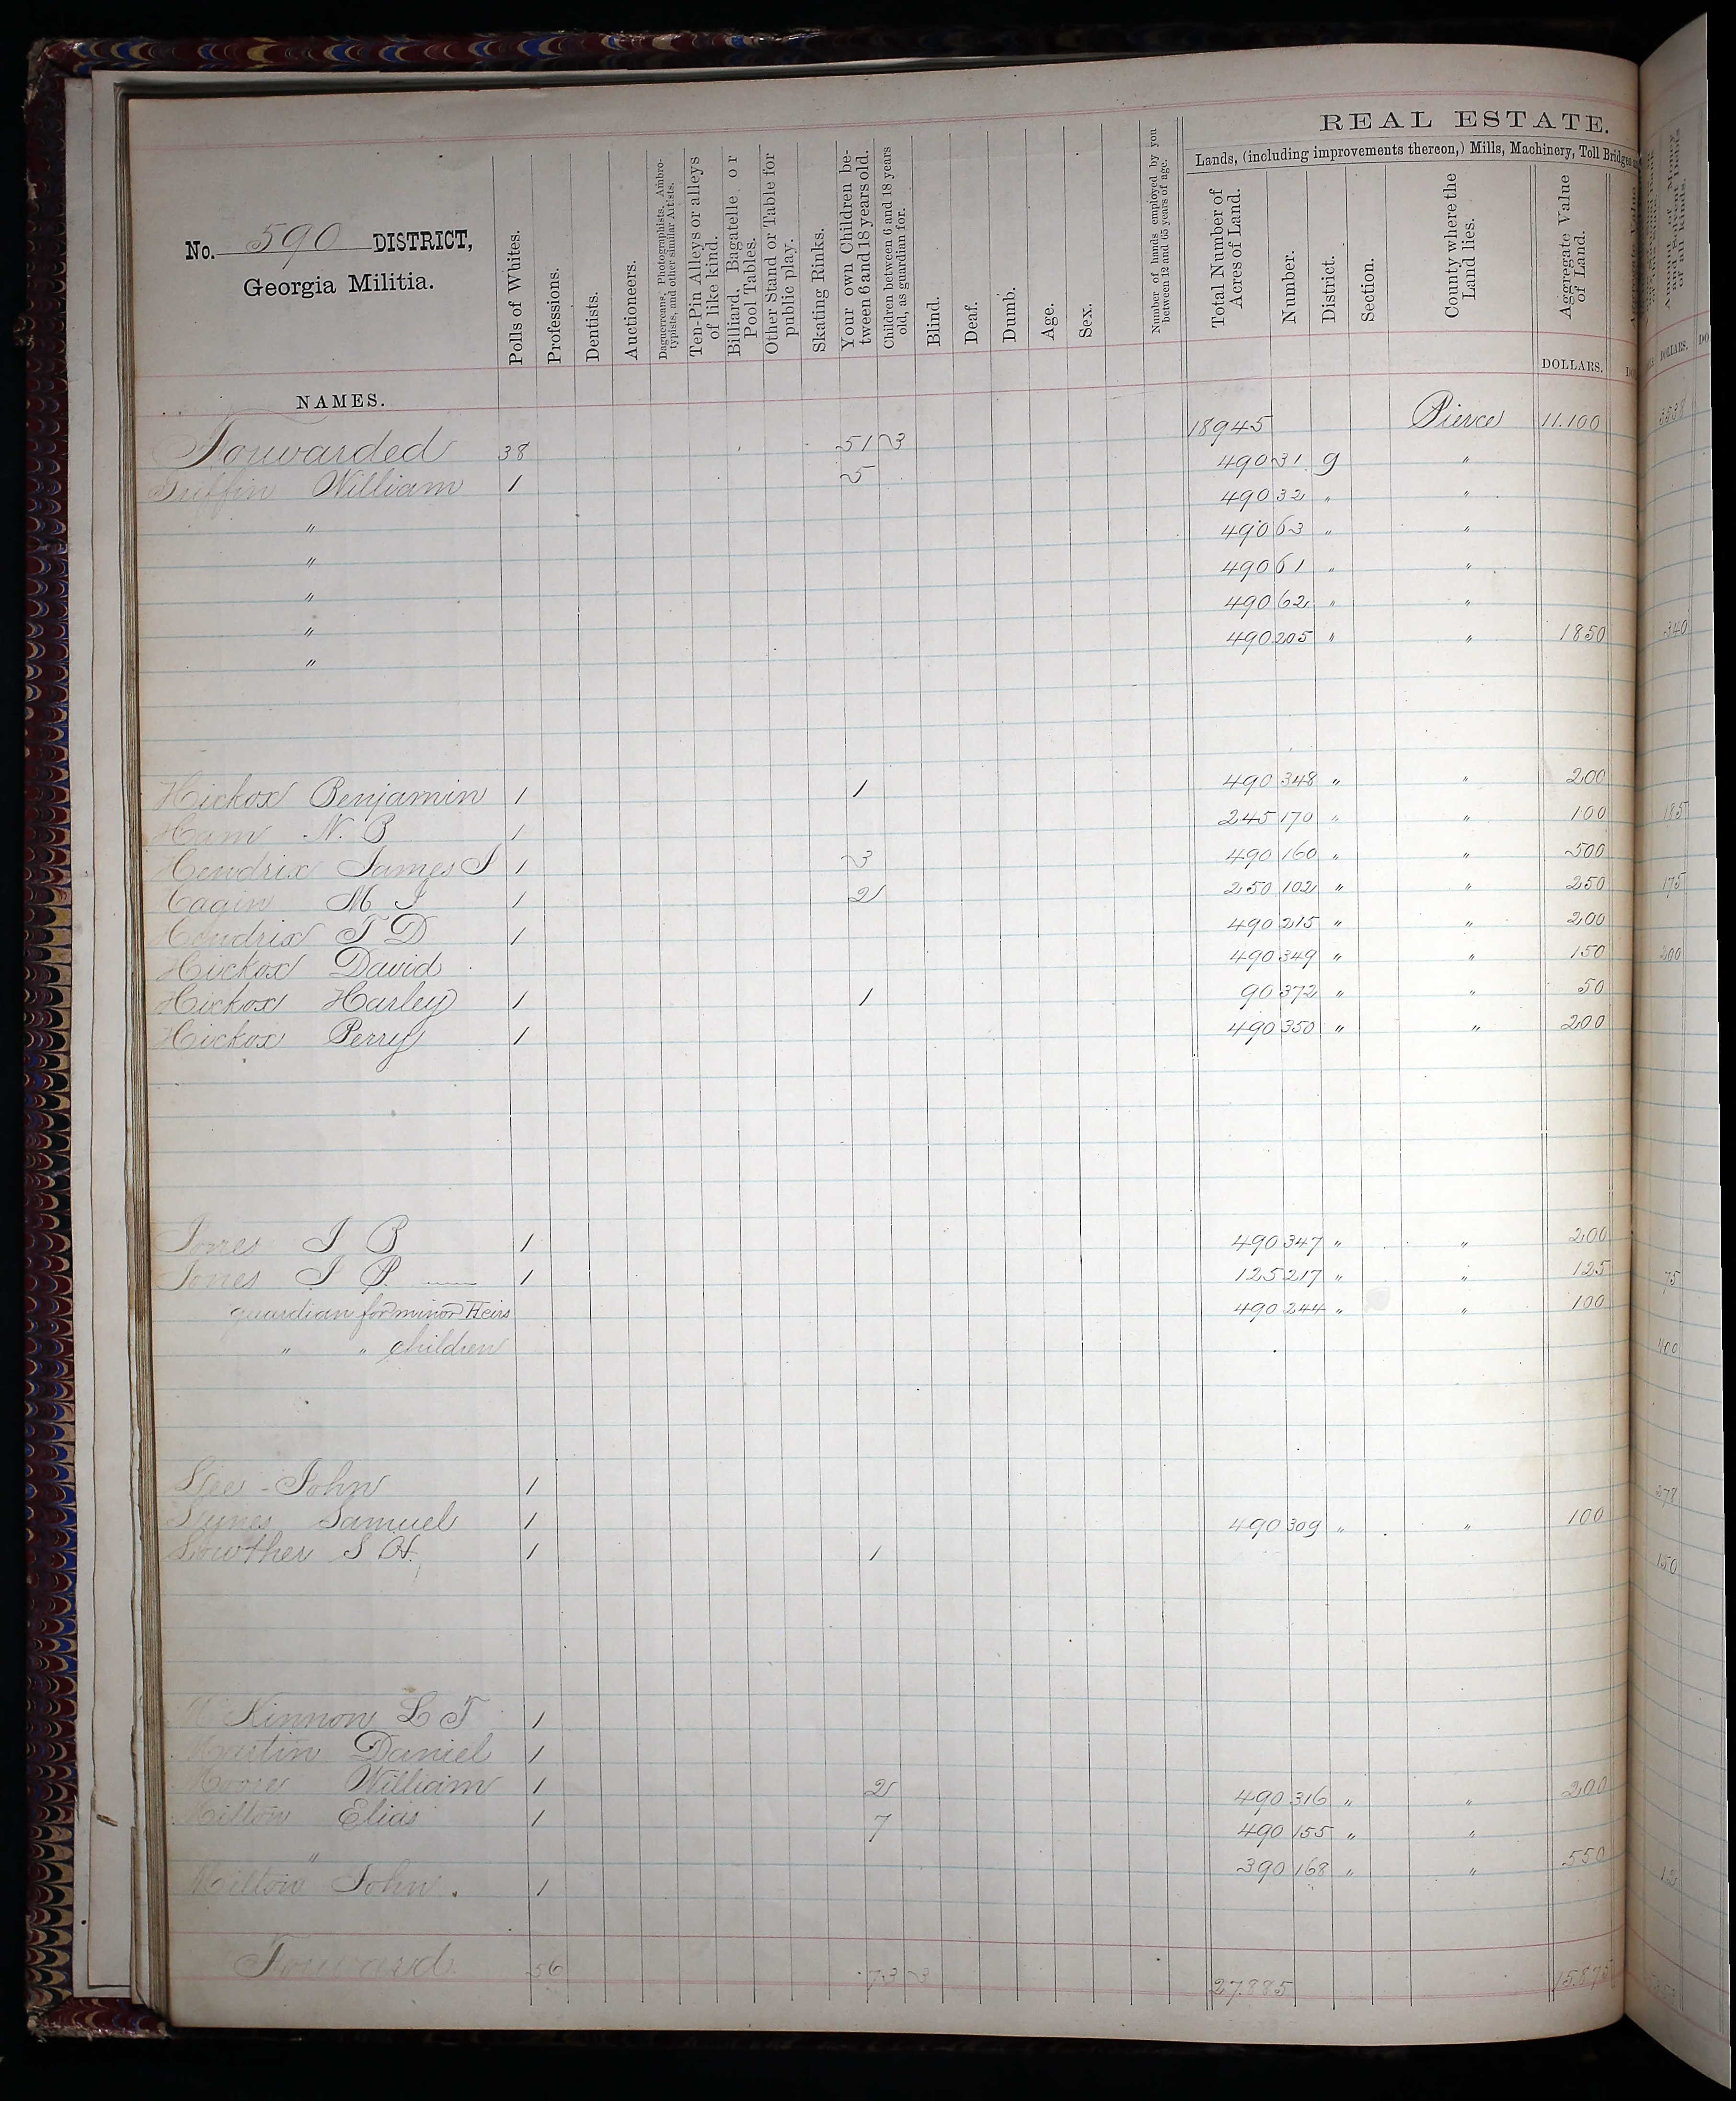 REAL ESTATE.
Lands, (including improvements thereon,) Mills, Machinery, Toll Bridges
No. 590 DISTRICT,
Georgia Militia.
NAMES.
Polls of Whites.
Professions.
Dentists.
Auctioneers.
Daguerreans, Photographists, Ambro-
typists, and other similar Artists.
Ten-Pin Alleys or alleys
of like kind.
Billiard, Bagatelle or
Pool Tables.
Other Stand or Table for
public play.
Skating Rinks.
Your own Children be-
tween 6 and 18 years old.
Children between 6 and 18 years
old, as guardian for.
Blind.
Deaf.
Dumb.
Age.
Sex.
Number of hands employed by you
between 12 and 65 years of age.
Total Number of
Acres of Land.
Number.
District.
Section.
County where the
Land lies.
Aggregate Value
of Land.
DOLLARS.
Amount of Money
and Solvent Debts
of all kinds.
DOLLARS.
Forwarded 38 51 3 18945 Pierce 11.100
Griffin William 1 5 490 31 9 "
" 490 32 " "
" 490 63 " "
" 490 61 " "
" 490 62 " "
" 490 205 " " 1850 340
Hickox Benjamin 1 1 490 348 " " 200
Ham N. B 1 245 170 " " 100 185
Hendrix James S 1 3 490 160 " " 500
Cagin M J 1 2 250 102 " " 250 175
Hendrix T D 1 490 215 " " 200
Hickox David 490 349 " " 150 200
Hickox Harley 1 1 90 372 " " 50
Hickox Perry 1 490 350 " " 200
Jones J B 1 490 347 " " 200
Jones J P. 1 125 217 " " 125 75
guardian for minor Heirs 490 244 " " 100
" " children 400
Lee - John 1 278
Lynes Samuel 1 490 309 " " 100
Lowther S H. 1 1 150
McKinnon L T 1
Martin Daniel 1
Moore William 1 2 490 316 " " 200
Milton Elias 1 7 490 155 " "
" 390 168 " " 550
Milton John. 1
Forward 56 73 3 27.885 15.875